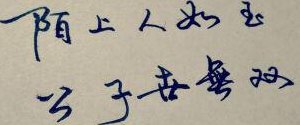 陌上人如玉
公子世無双